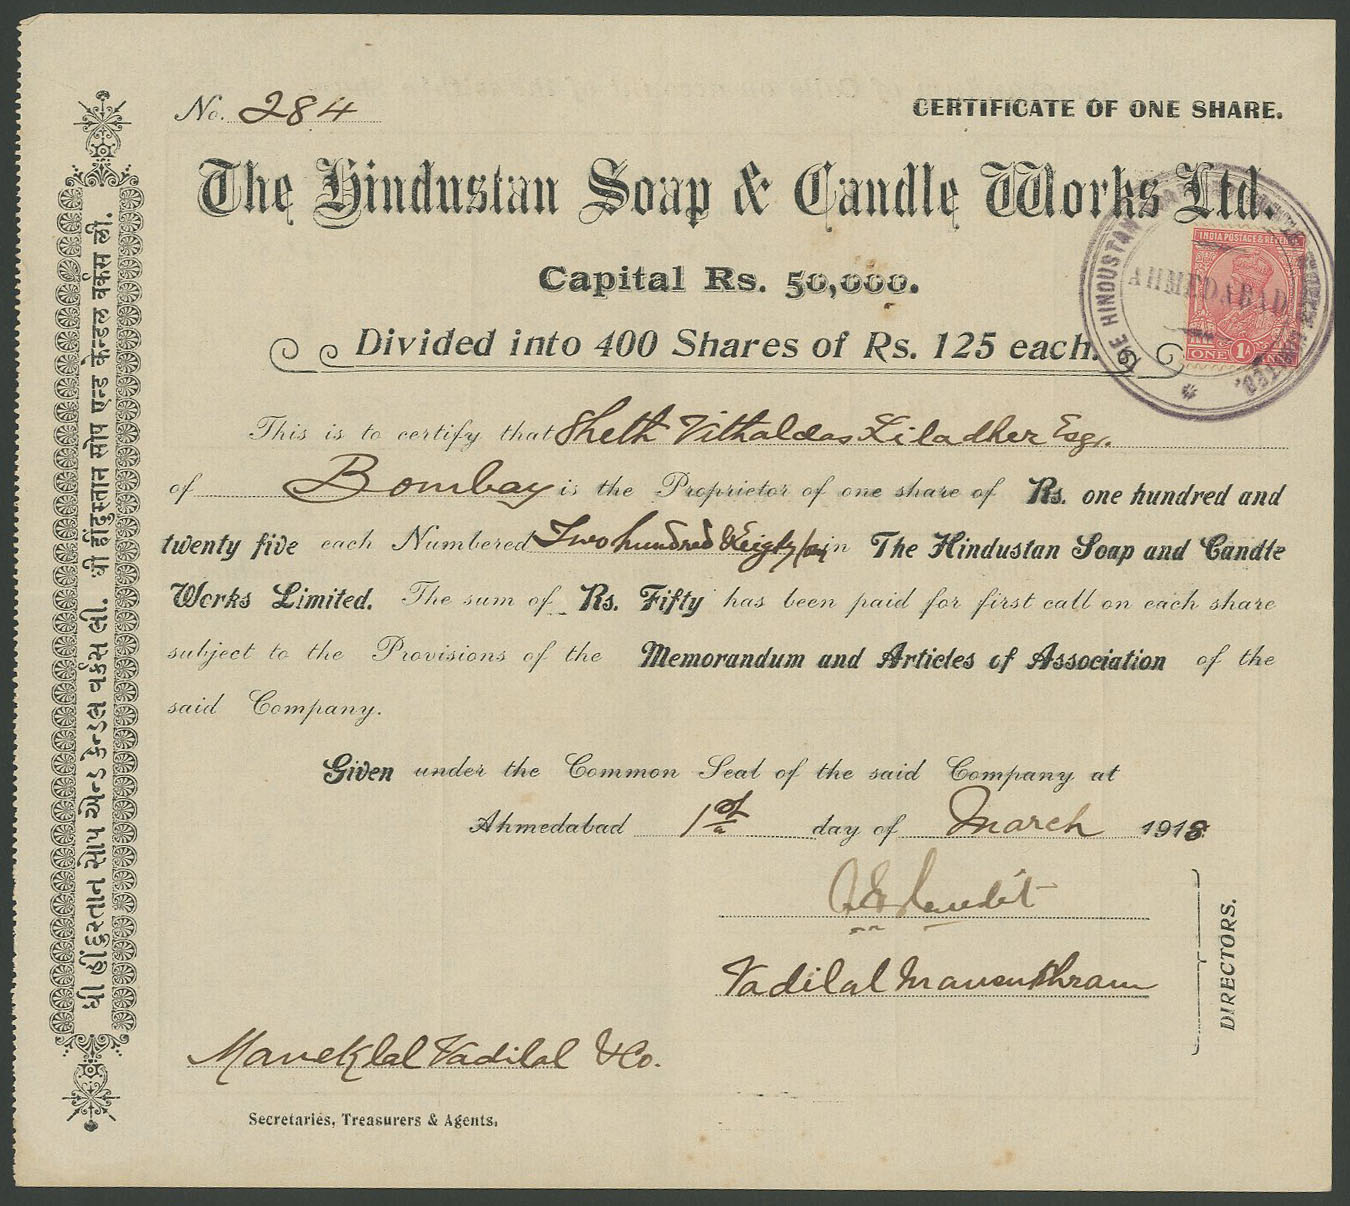 No. 284
CERTIFICATE OF ONE SHARE.
The Hindustan Soap & Candle Works Ltd.
Capital Rs. 50,000.
Divided into 400 Shares of Rs. 125 each.
INDIA POSTAGE & REVENUE
ONE 1A ANNA
THE HINDUSTAN
AHMEDABAD
This is to certify that Sheth Vithaldas Liladher Esqr.
of Bombay is the Proprietor of one share of Rs. one hundred and
twenty five each Numbered Two hundred & Eighty four in The Hindustan Soap and Candle
Works Limited. The sum of Rs. Fifty has been paid for first call on each share
subject to the Provisions of the Memorandum and Articles of Association of the
said Company.
Given under the Common Seal of the said Company at
Ahmedabad 1st day of March 1918
Vadilal Mansukhram
DIRECTORS.
Maneklal Vadilal & Co.
Secretaries, Treasurers & Agents.
ધી હીંદુસ્તાન સોપ એન્ડ કેન્ડલ વર્કસ લી. श्री हींदुस्तान सोप एन्ड केन्डल वर्कस ली.